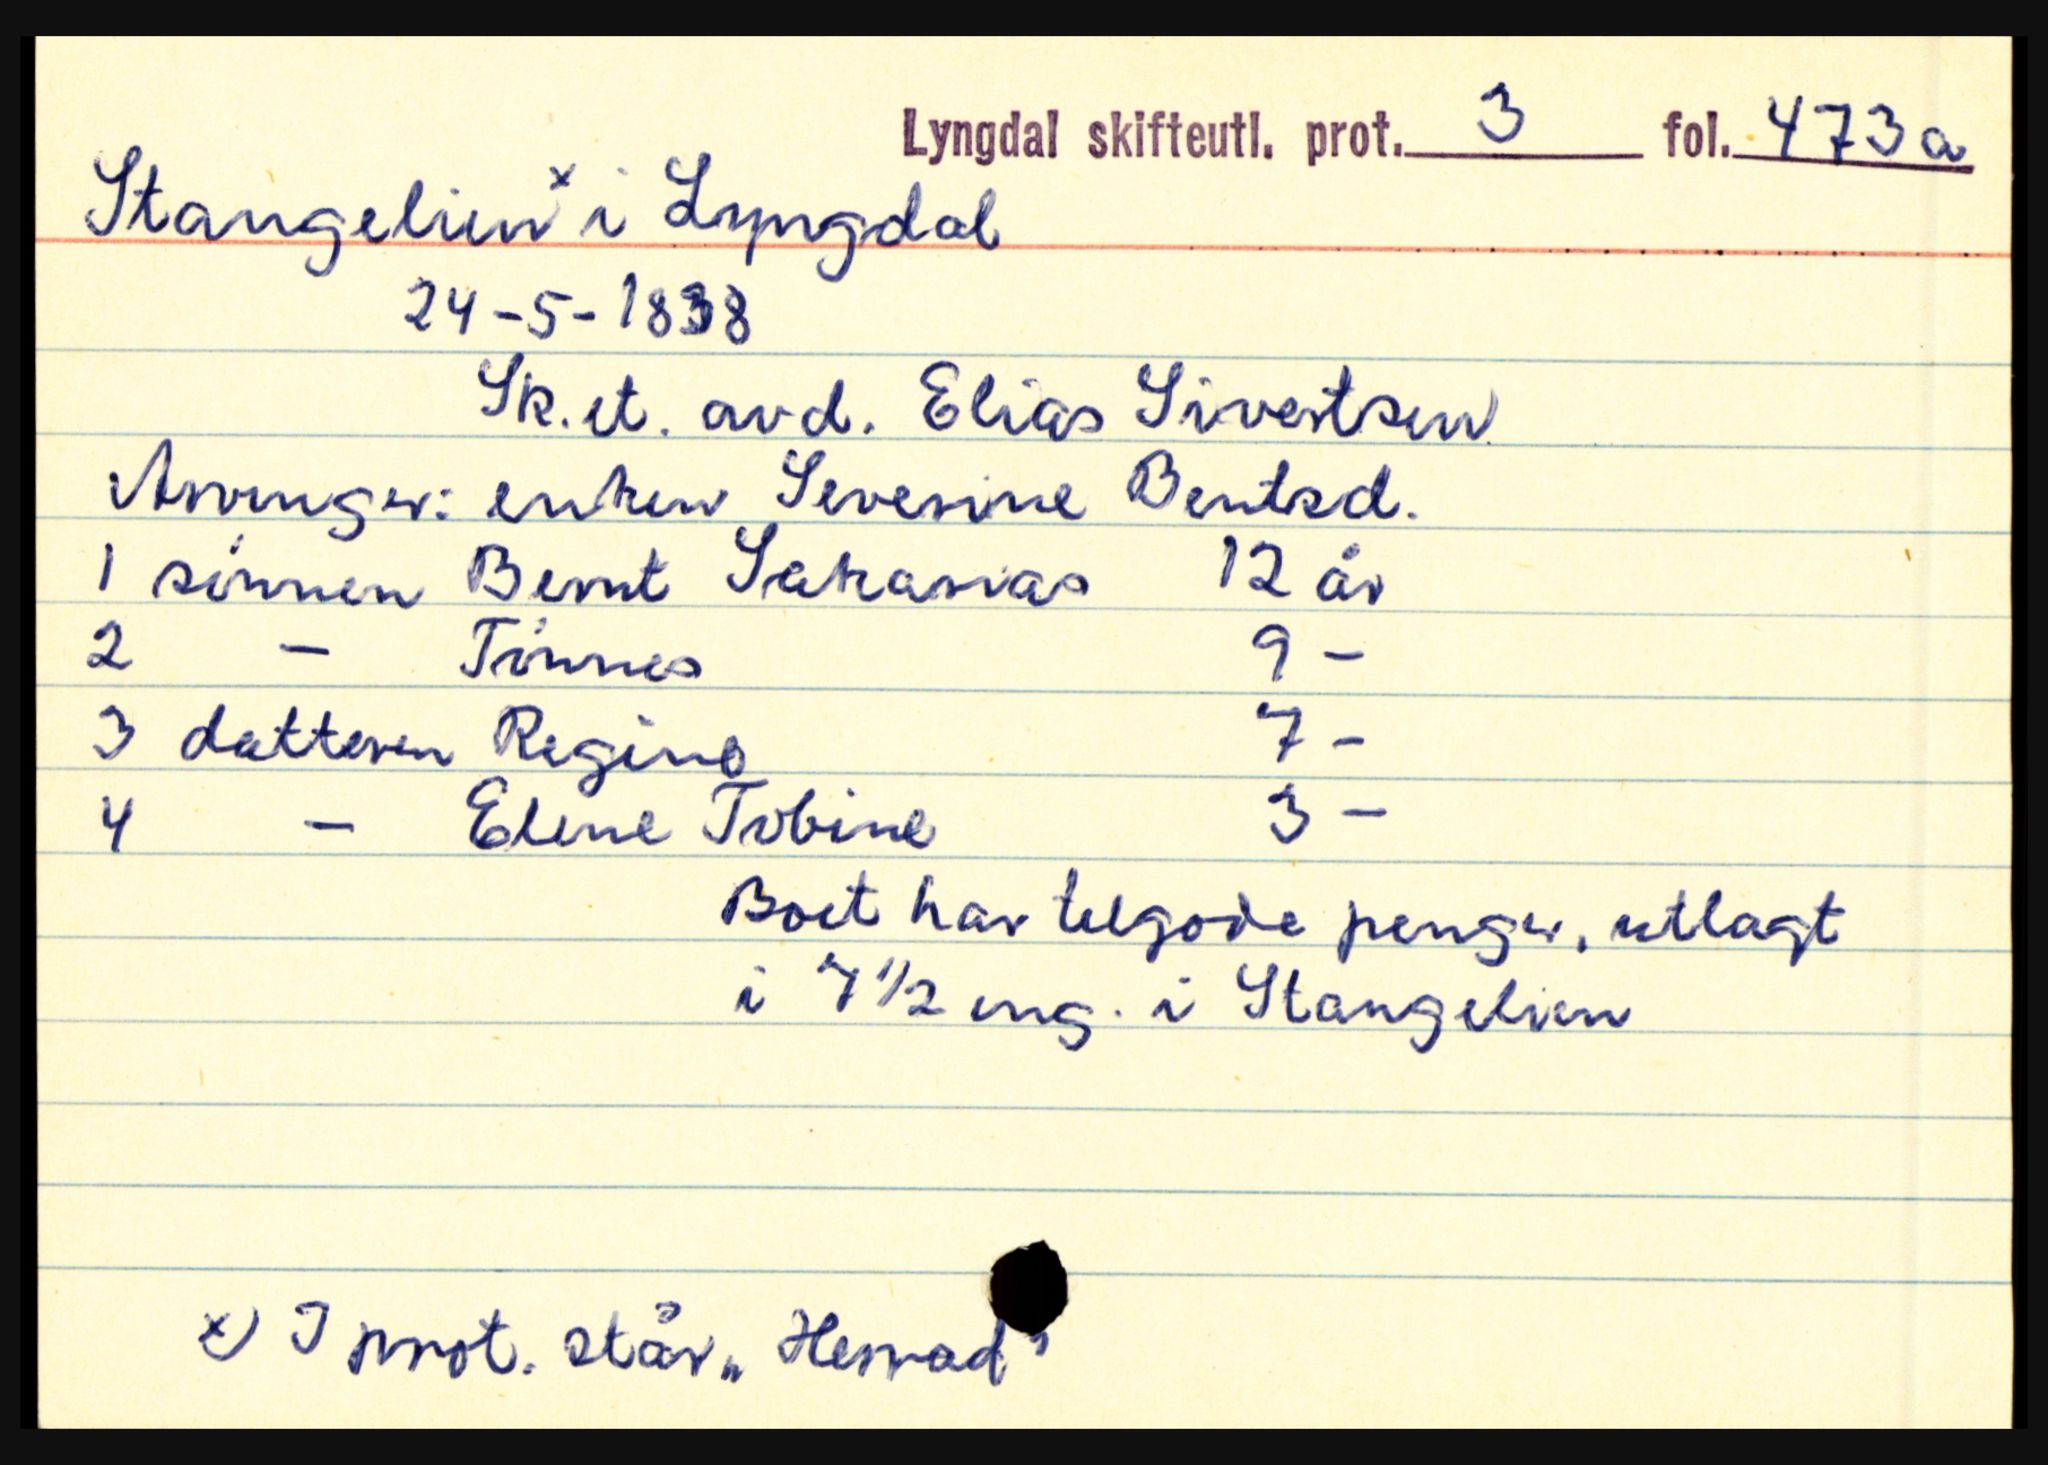 Lyngdal skifteutl. prot. 3 fol. 473a
Stangelien x i Lyngdal
24-5-1838
Sk. et. avd. Elias Sivertsen
Arvinger: enken Severine Bentsd.
1 sønnen Bernt Sakarias 12 år
2 - Tønnes 9 -
3 datteren Regine 7 -
4 - Elene Tobine 3 -
Boet har tilgode penger, utlagt
i 7 1/2 eng. i Stangelien
x) I prot. står „Herrad"